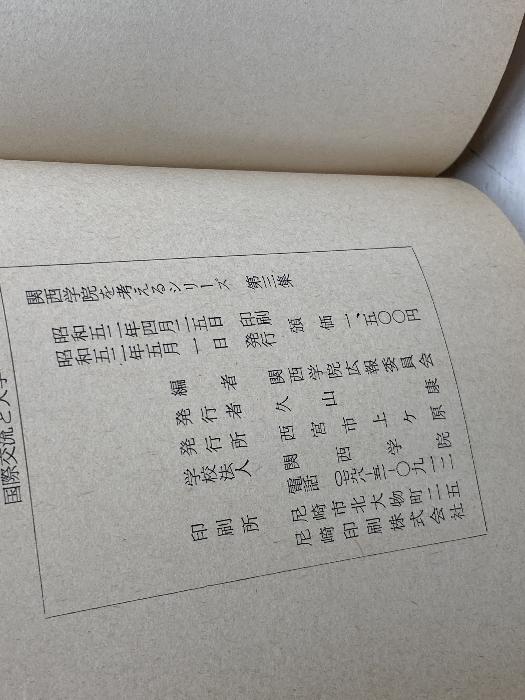 国際交流と大学
関西学院を考えるシリーズ 第三集
昭和五二年四月二五日 印刷
昭和五二年五月一日 発行
頒価 一、五〇〇円
編者 関西学院広報委員会
発行者 久山康
発行所 西宮市上ケ原
学校法人 関西学院
電話
印刷所 尼崎市北大物町二二五
尼崎印刷株式会社